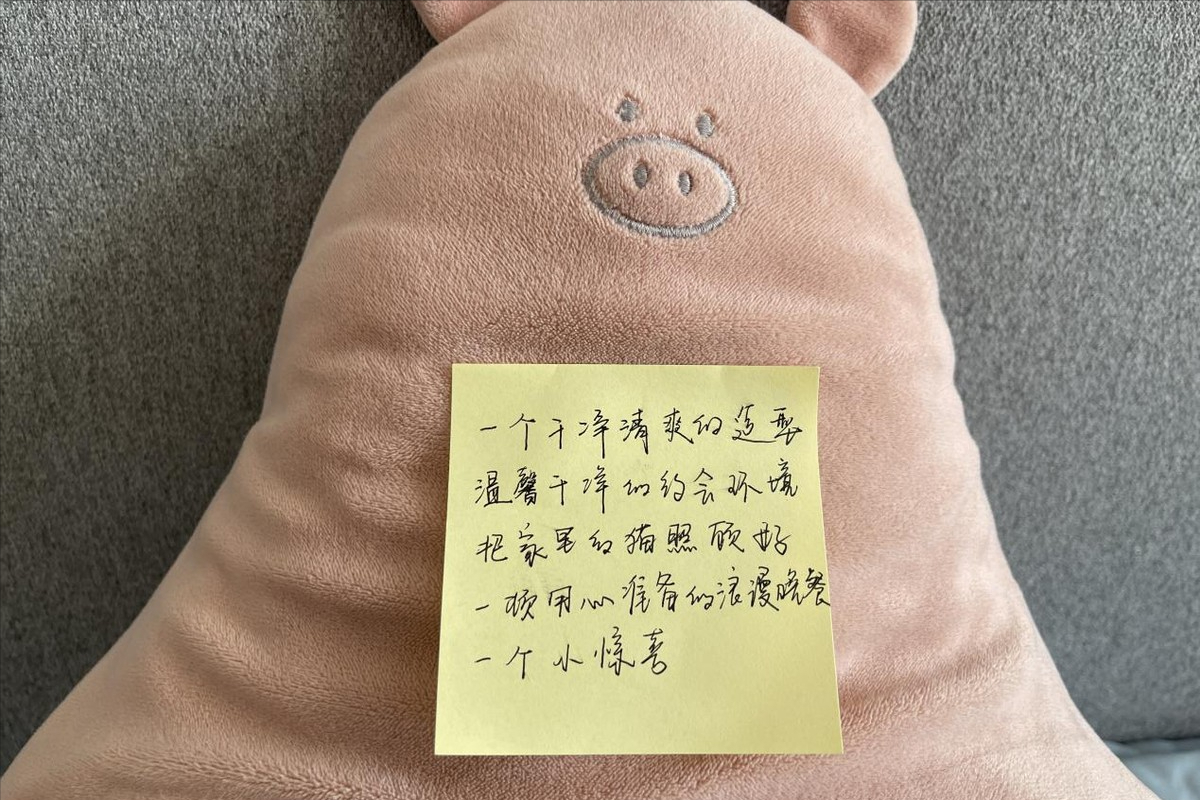 一个干净清爽的造型
温馨干净的约会环境
把家里的猫照顾好
一顿用心准备的浪漫晚餐
一个小惊喜